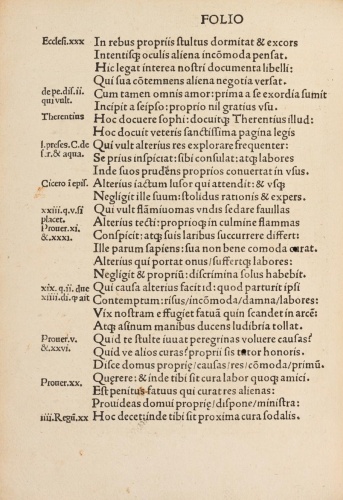 FOLIO
Ecclesi.xxx In rebus propriis stultus dormitat & excors
Intentisq; oculis aliena incõmoda pensat.
Hic legat interea nostri documenta libelli:
Qui sua cõtemnens aliena negotia versat.
de pe.dis.ii. Cum tamen omnis amor: prima a se exordia sumit
qui vult. Incipit a seipso: proprio nil gratius vsu.
Therentius Hoc docuere sophi: docuitq; Therentius illud:
Hoc docuit veteris sanctissima pagina legis
l.preses.C.de Qui vult alterius res explorare frequenter:
s.r.& aqua. Se prius inspiciat: sibi consulat: atq; labores
Inde suos prudẽns proprios conuertat in vsus.
Cicero i epis. Alterius iactum lusor qui attendit: & vsq;
Negligit ille suum: stolidus rationis & expers.
xxiii.q.v.si Qui vult flãmiuomas vndis sedare fauillas
placet. Alterius tecti: proprioq; in culmine flammas
Prouer.xi. Conspicit: atq; suis laribus succurrere differt:
&.xxxi. Ille parum sapiens: sua non bene comoda curat.
Alterius qui portat onus/suffertq; labores:
Negligit & propriũ: discrimina solus habebit.
xix.q.ii.due Qui causa alterius facit id: quod parturit ipsi
xiiii.di.q ait Contemptum: risus/incõmoda/damna/labores:
Vix nostram effugiet fatuã quin scandet in arcẽ:
Atq; asinum manibus ducens ludibria tollat.
Prouer.v. Quid te stulte iuuat peregrinas voluere causas?
&.xxvi. Quid ve alios curas? proprii sis tutor honoris.
Disce domus proprie/causas/res/cõmoda/primũ.
Querere: & inde tibi sit cura labor quoq; amici.
Prouer.xx. Est penitus fatuus qui curat res alienas:
Prouideas domui proprie/dispone/ministra:
iiii.Regũ.xx Hoc decet: inde tibi sit proxima cura sodalis.